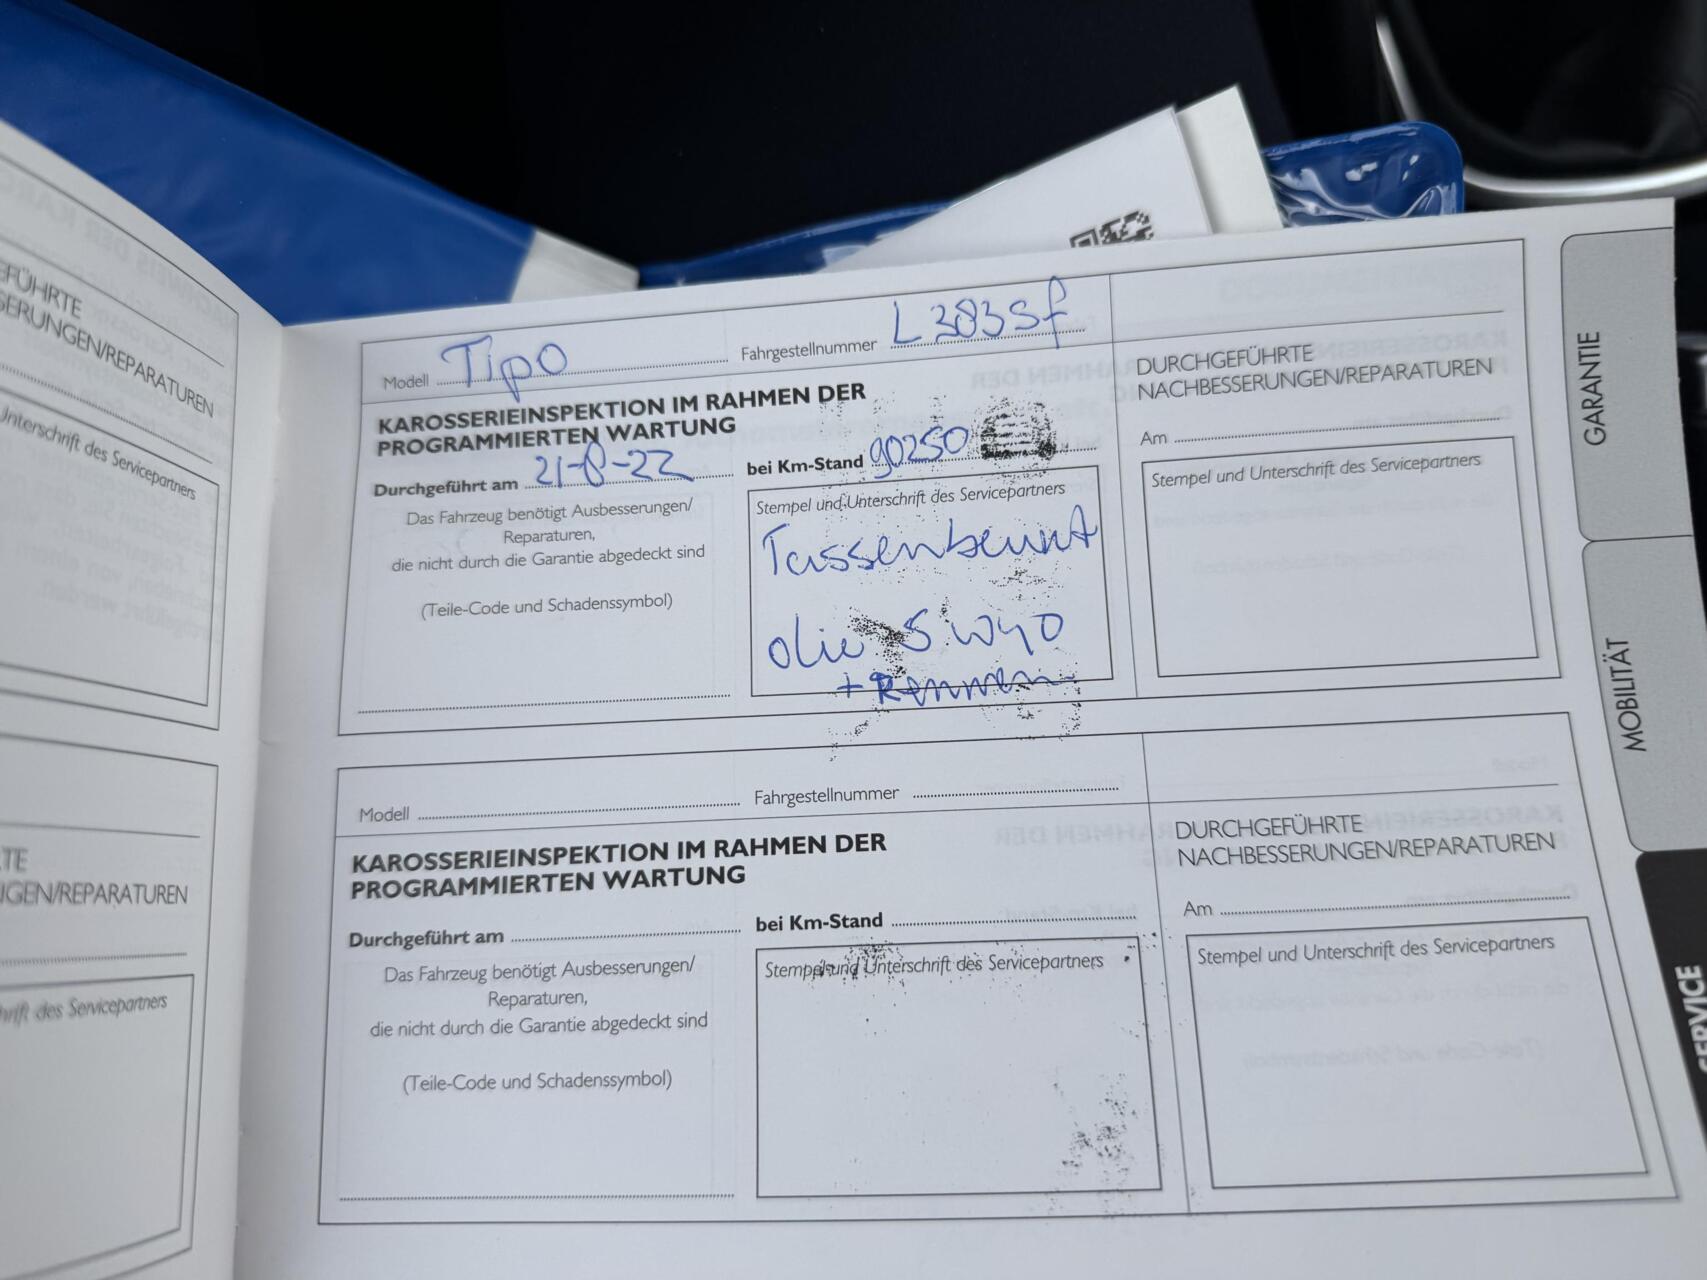 FÜHRTE
SERUNGEN/REPARATUREN
Unterschrift des Servicepartners
TE
NGEN/REPARATUREN
hrift des Servicepartners
Modell Tipo Fahrgestellnummer L383sf
KAROSSERIEINSPEKTION IM RAHMEN DER
PROGRAMMIERTEN WARTUNG
Durchgeführt am 21-8-22 bei Km-Stand 90250
Das Fahrzeug benötigt Ausbesserungen/
Reparaturen,
die nicht durch die Garantie abgedeckt sind
(Teile-Code und Schadenssymbol)
Stempel und Unterschrift des Servicepartners
Tussenbeurt
olie 5W40
+ Remmen
DURCHGEFÜHRTE
NACHBESSERUNGEN/REPARATUREN
Am
Stempel und Unterschrift des Servicepartners
Modell Fahrgestellnummer
KAROSSERIEINSPEKTION IM RAHMEN DER
PROGRAMMIERTEN WARTUNG
Durchgeführt am bei Km-Stand
Das Fahrzeug benötigt Ausbesserungen/
Reparaturen,
die nicht durch die Garantie abgedeckt sind
(Teile-Code und Schadenssymbol)
Stempel und Unterschrift des Servicepartners
DURCHGEFÜHRTE
NACHBESSERUNGEN/REPARATUREN
Am
Stempel und Unterschrift des Servicepartners
GARANTIE
MOBILITÄT
SERVICE